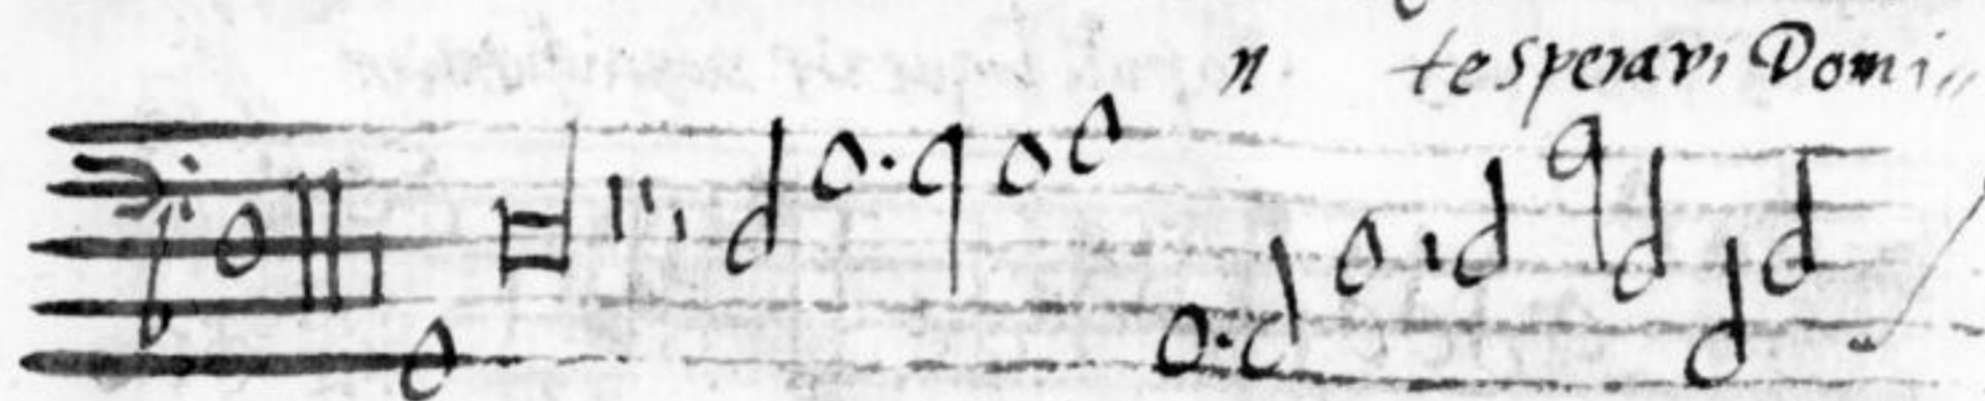 n te Speravi Domi„